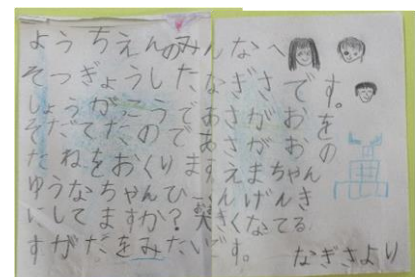 ようちえんのみんなへ
そつぎょうした、なぎさです。
しょうがっこうであさがおを
そだてたのであさがおの
たねをおくります えまちゃん
ゆうなちゃん げんき
にしてますか? 大きくなてる
すがたをみたいです。
なぎさより